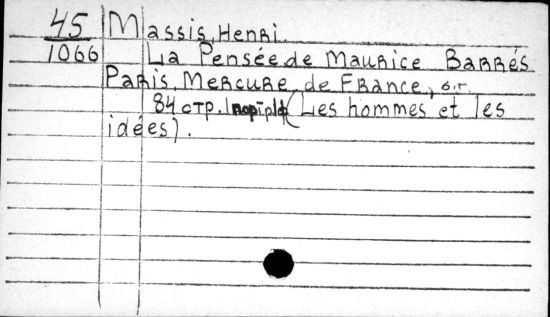 45 Massis, Henri.
1066 La Pensée de Maurice Barrés
Paris, Mercure de France, б.г
84 стр. 1 портр. (Les hommes et les
idées).